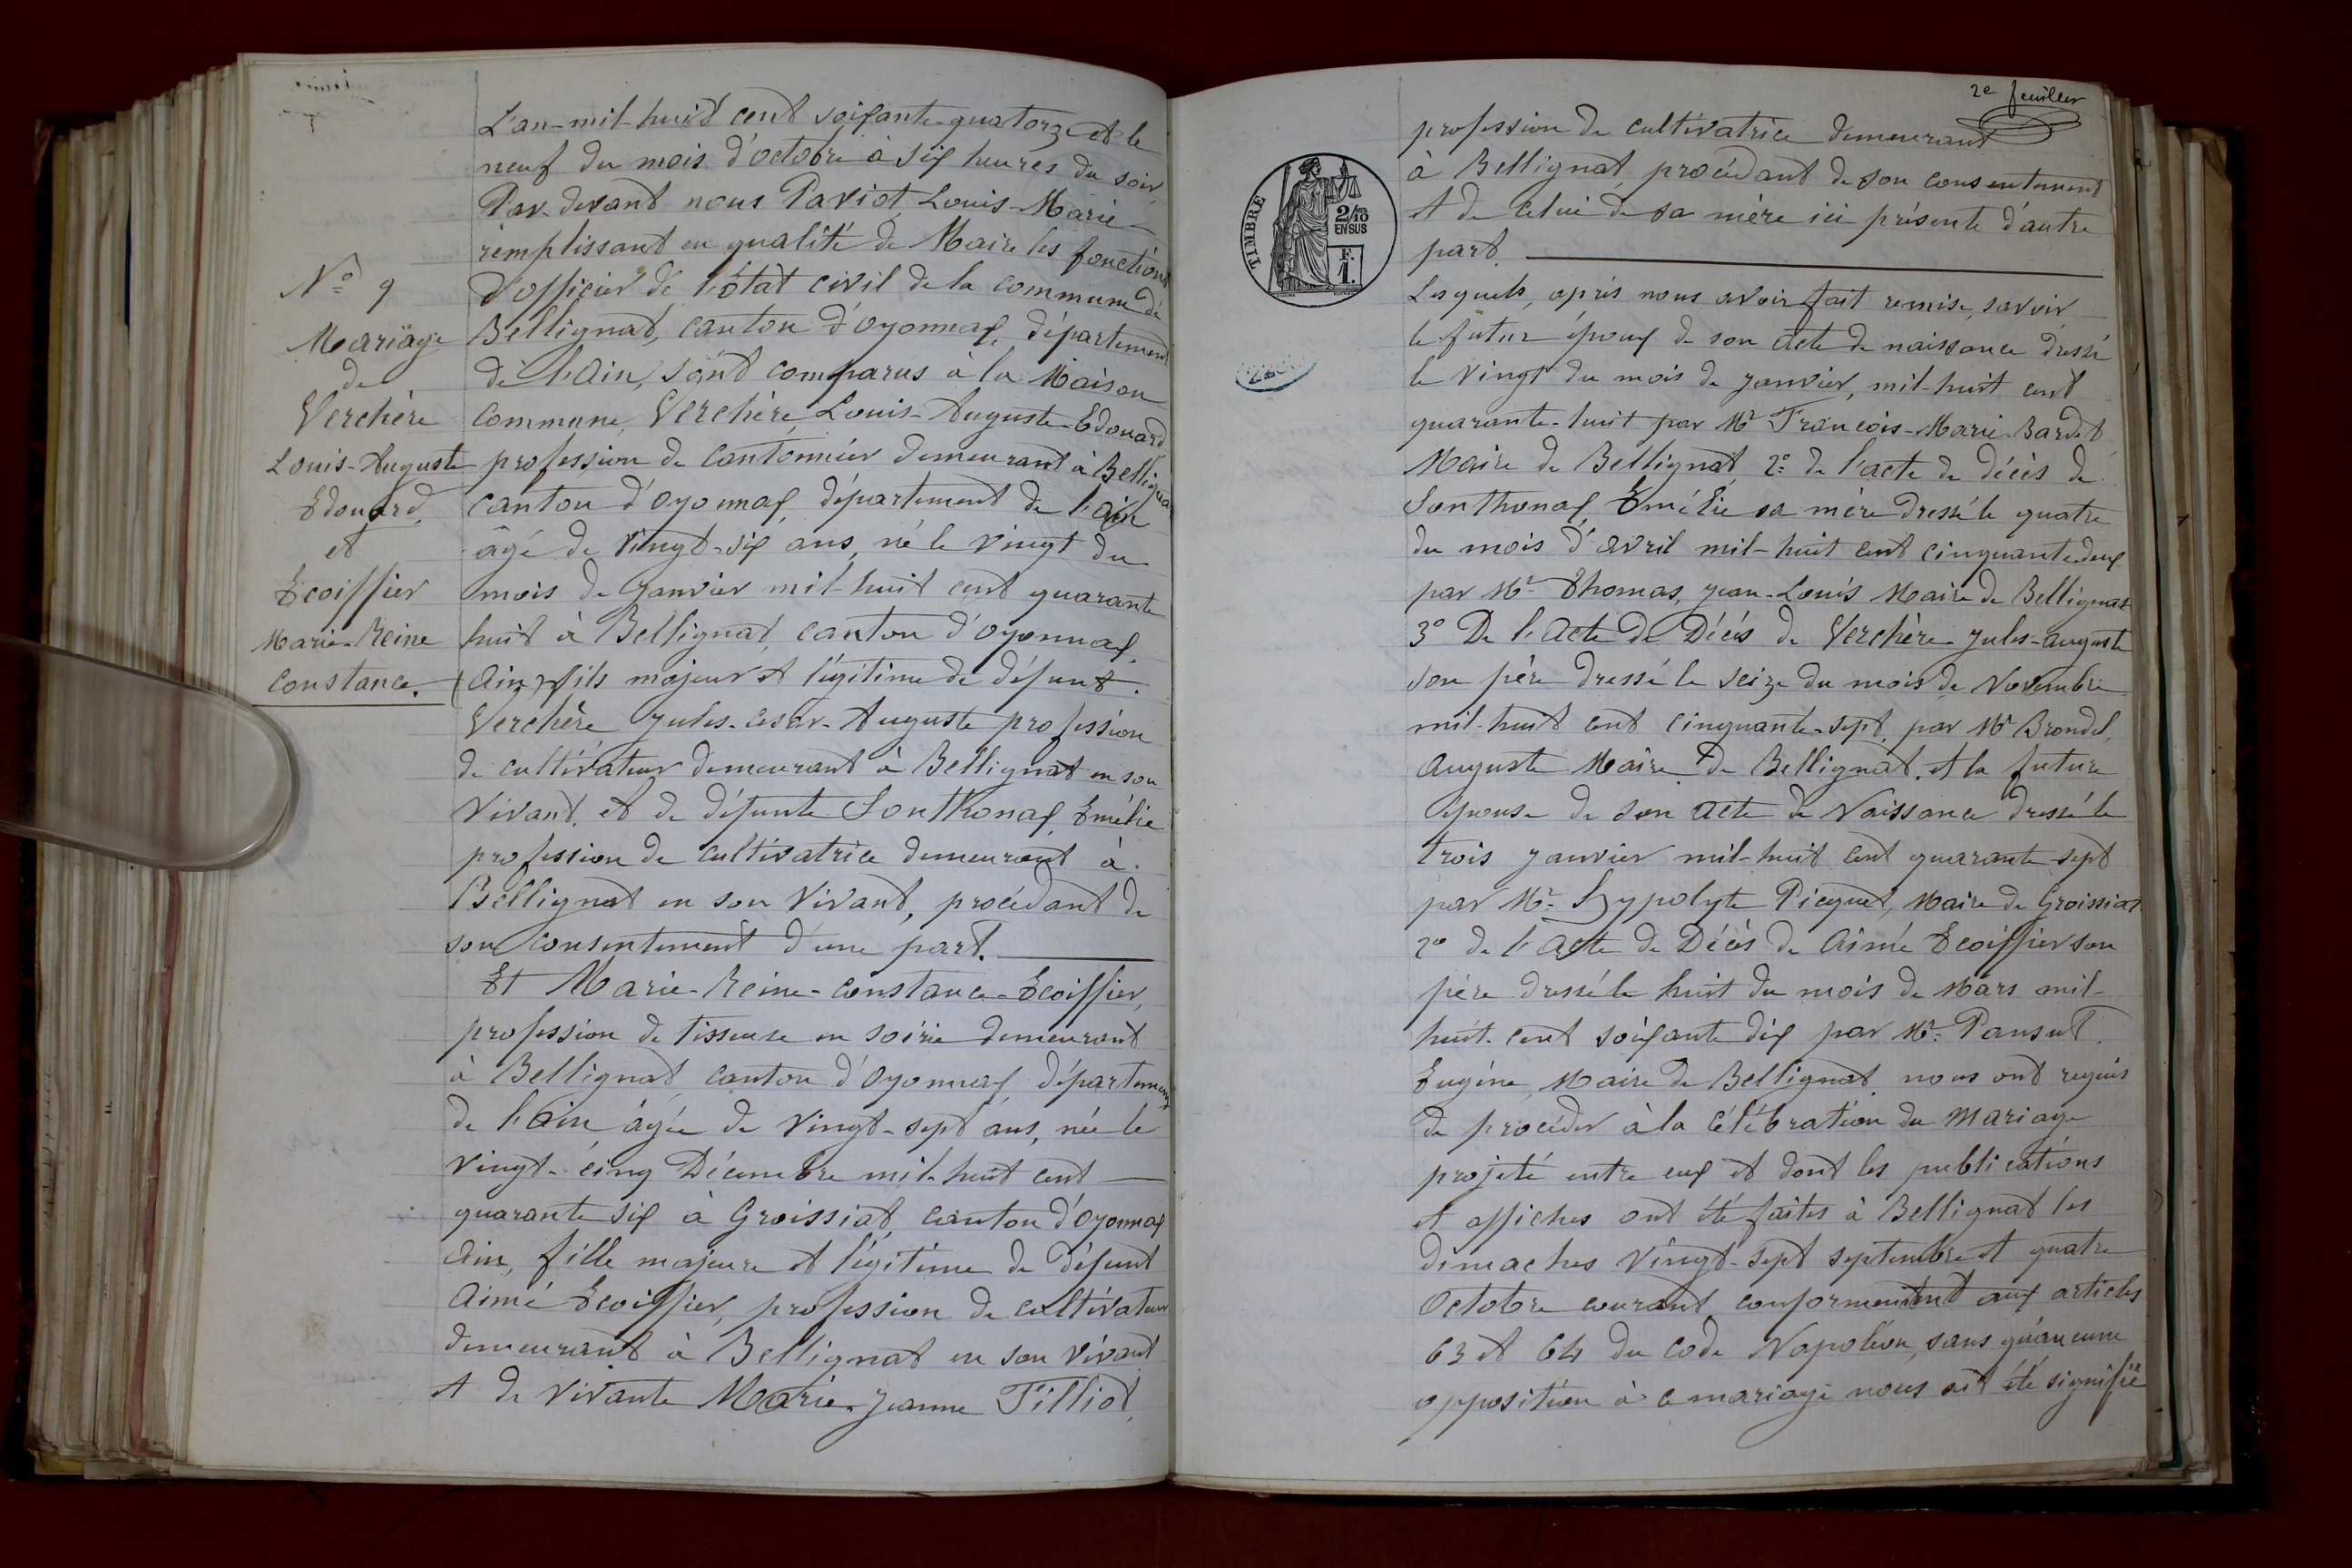 L'an-mil-huit cent soixante-quatorze et le
neuf du mois d'octobre à six heures du soir,
Par-devant nous Paviot, Louis-Marie
remplissant en qualité de Maire les fonctions
d'officier de l'état civil de la commune de
Bellignat, canton d'oyonnax, département
de l'Ain, sont comparus à la Maison
commune, Verchère, Louis-Auguste-Edouard
profession de cantonnier demeurant à Bellignat
canton d'oyonnax, département de l'ain
âgé de vingt-six ans, né le vingt du
mois de janvier mil-huit cent quarante
huit à Bellignat, canton d'oyonnax,
(Ain) fils majeur et légitime de défunt.
Verchère jules-cesar-Auguste profession
de cultivateur demeurant à Bellignat en son
vivant, et de défunte Sonthonax Emélie
profession de cultivatrice demeurant à
Bellignat en son vivant, procédant de
son consentement d'une part.
Et Marie-Reine-constance-Ecoiffier,
profession de tisseuse en soirie demeurant
à Bellignat, canton d'Oyonnax, département
de l'ain âgée de vingt-sept ans, née le
vingt-cinq Décembre mil-huit cent
quarante six à Groissiat, canton d'Oyonnax
Ain, fille majeure et légitime de défunt
Aimé Ecoiffier, profession de cultivateur
demeurant à Bellignat en son vivant
et de vivante Marie-jeanne Tilliot,
N° 9
Mariage
de
Verchère
Louis-Auguste
Edouard,
et
Ecoiffier
Marie-Reine
constance.
2e feuillet
TIMBRE
2/10
EN SUS
F.
1.
profession de cultivatrice demeurant
à Bellignat procédant de son consentement
et de celui de sa mère ici présente d'autre
part.
Lesquels, après nous avoir fait remise, savoir
le futur époux de son acte de naissance dressé
le vingt du mois de janvier, mil-huit cent
quarante-huit par Mr François-Marie Bardet
Maire de Bellignat, 2° de l'acte de décès de
Sonthonax Emélie sa mère dressé le quatre
du mois d'avril mil-huit cent cinquante deux
par Mr Thomas, jean-Louis Maire de Bellignat
3° De l'Acte de Décés de Verchère jules-auguste
son père dressé le seize du mois de Novembre
mil-huit cent cinquante-sept, par Mr Brondel,
Auguste Maire de Bellignat. et la future
épouse de son acte de Naissance dressé le
trois janvier mil-huit cent quarante sept
par Mr Hypolyte Picquet, Maire de Groissiat
2° de l'acte de Décès de Aimé Ecoiffier son
père dressé le huit du mois de Mars mil-
huit-cent soixante dix par Mr Pansut.
Eugène, Maire de Bellignat nous ont requis
de procéder à la célébration du Mariage
projeté entre eux et dont les publications
et affiches ont été faites à Bellignat les
dimaches vingt-sept septembre et quatre
Octobre courant conformement aux articles
63 et 64 du code Napoléon, sans qu'aucune
opposition à ce mariage nous ait été signifié